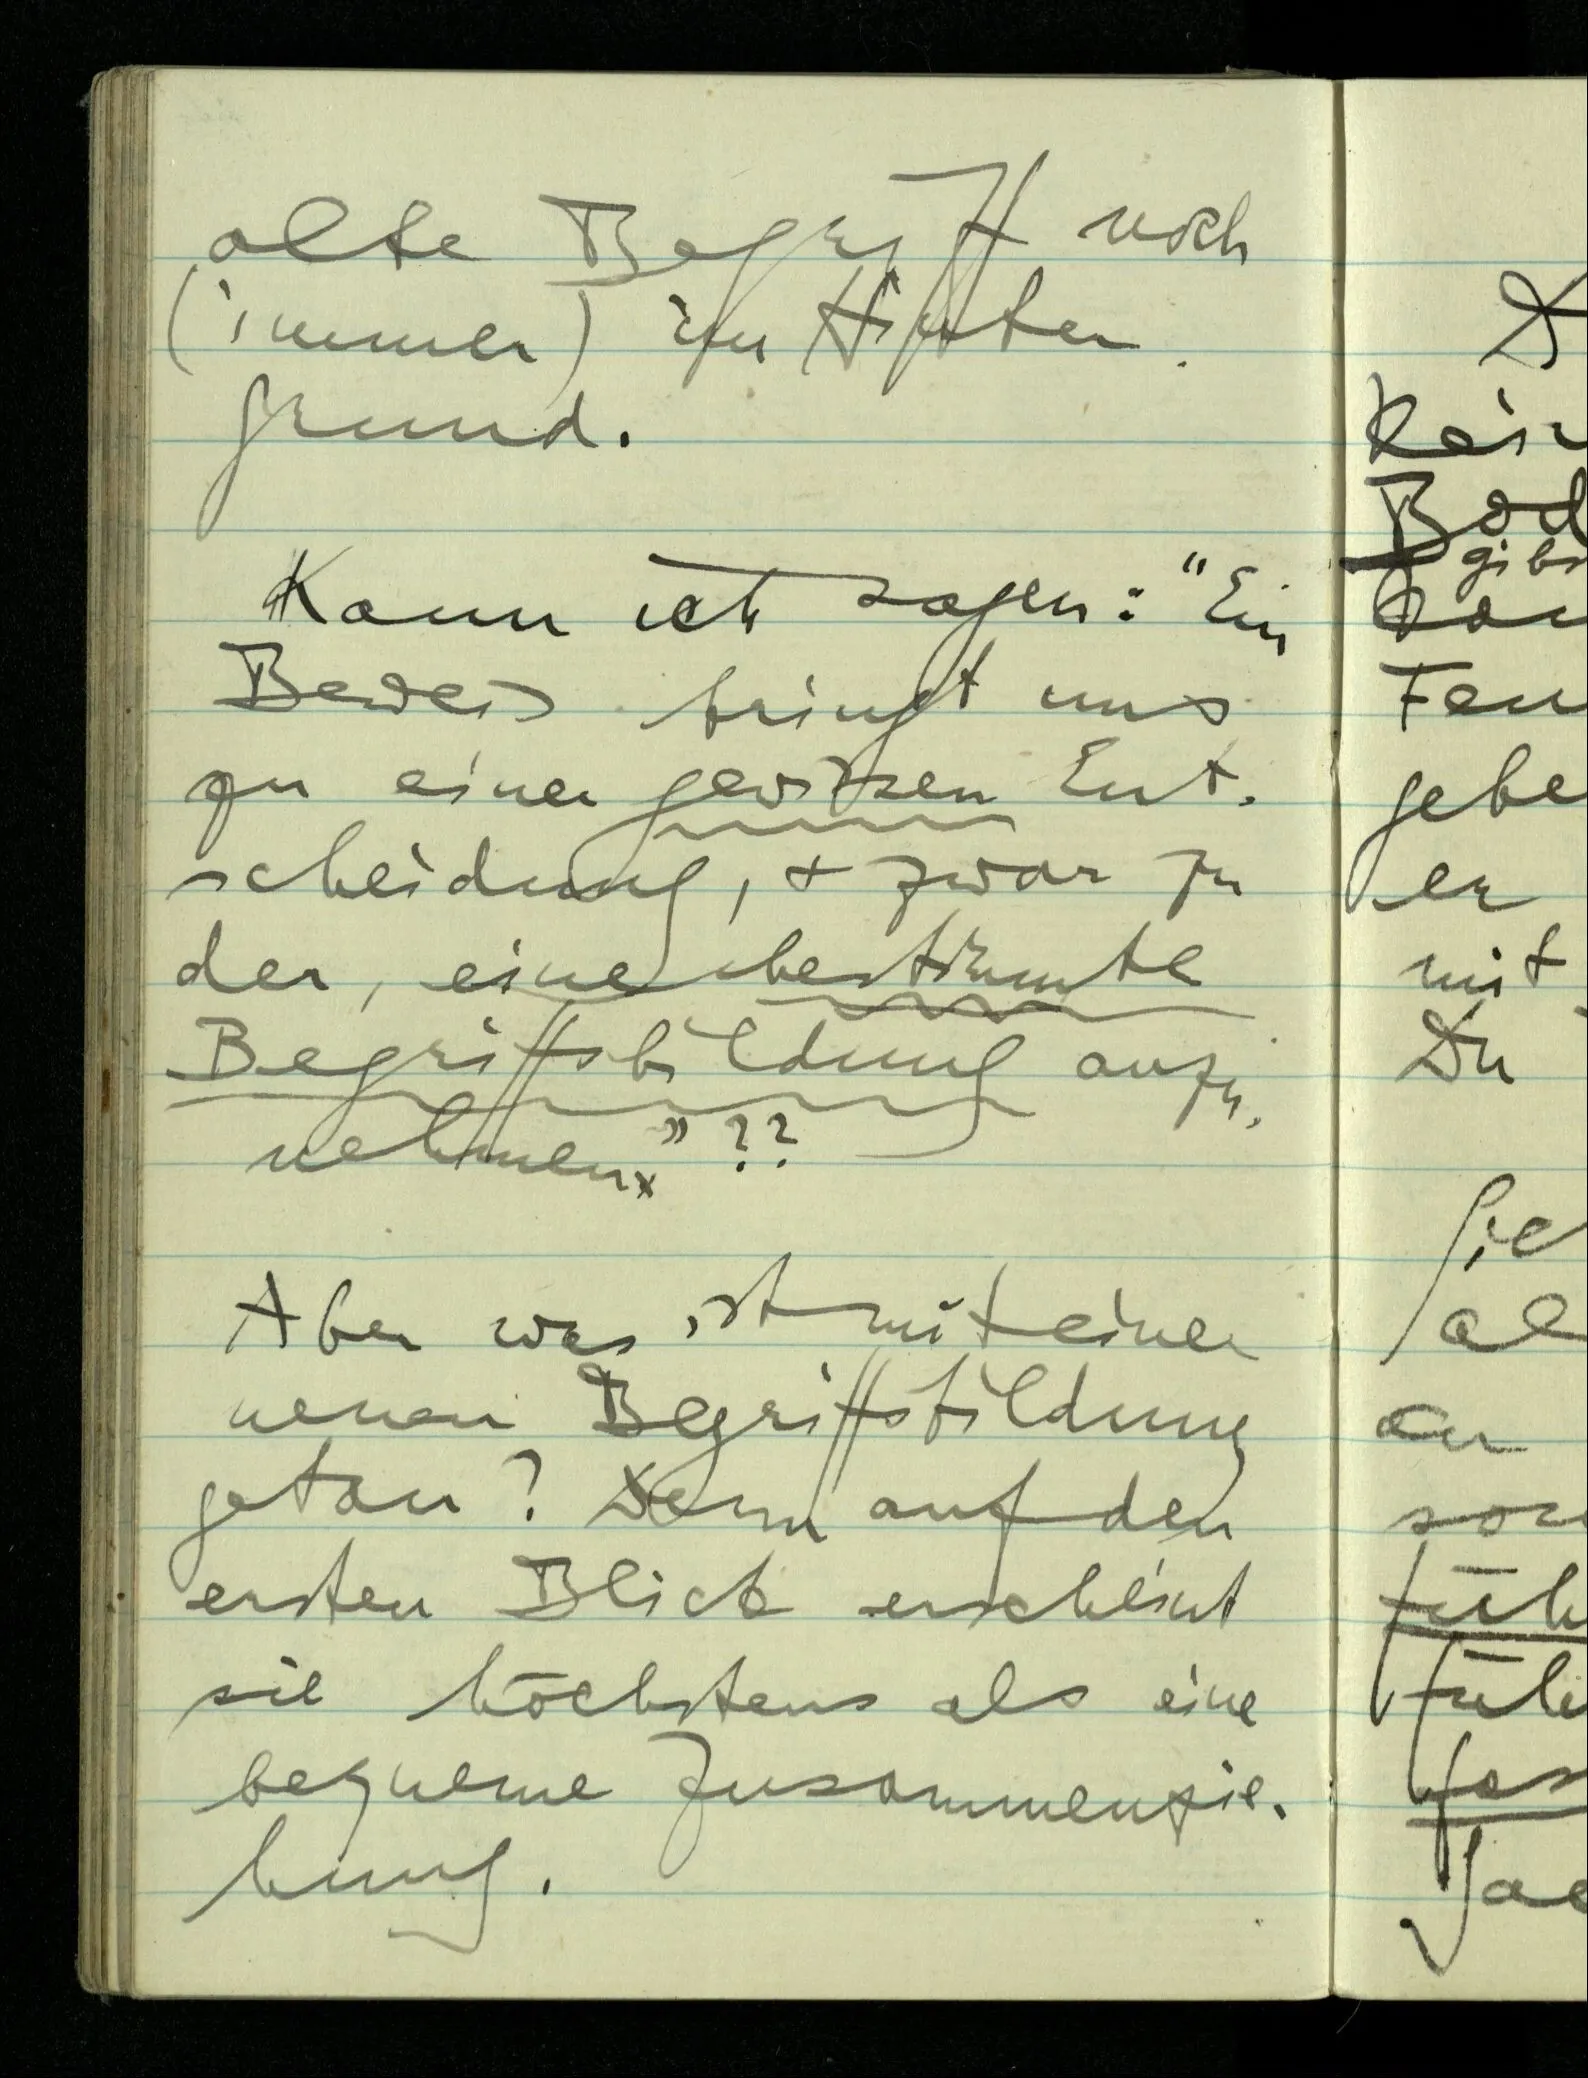 alte Begriff noch
(immer) im Hinter-
grund.
Kann ich sagen: "Ein
Beweis bringt uns
zu einer gewissen Ent-
scheidung, + zwar zu
der, eine bestimmte
Begriffsbildung anzu-
nehmen" ??
Aber was ist mit einer
neuen Begriffsbildung
getan? Denn auf den
ersten Blick erscheint
sie höchstens als eine
bequeme Zusammenzie-
hung.
gibt
mit
Du